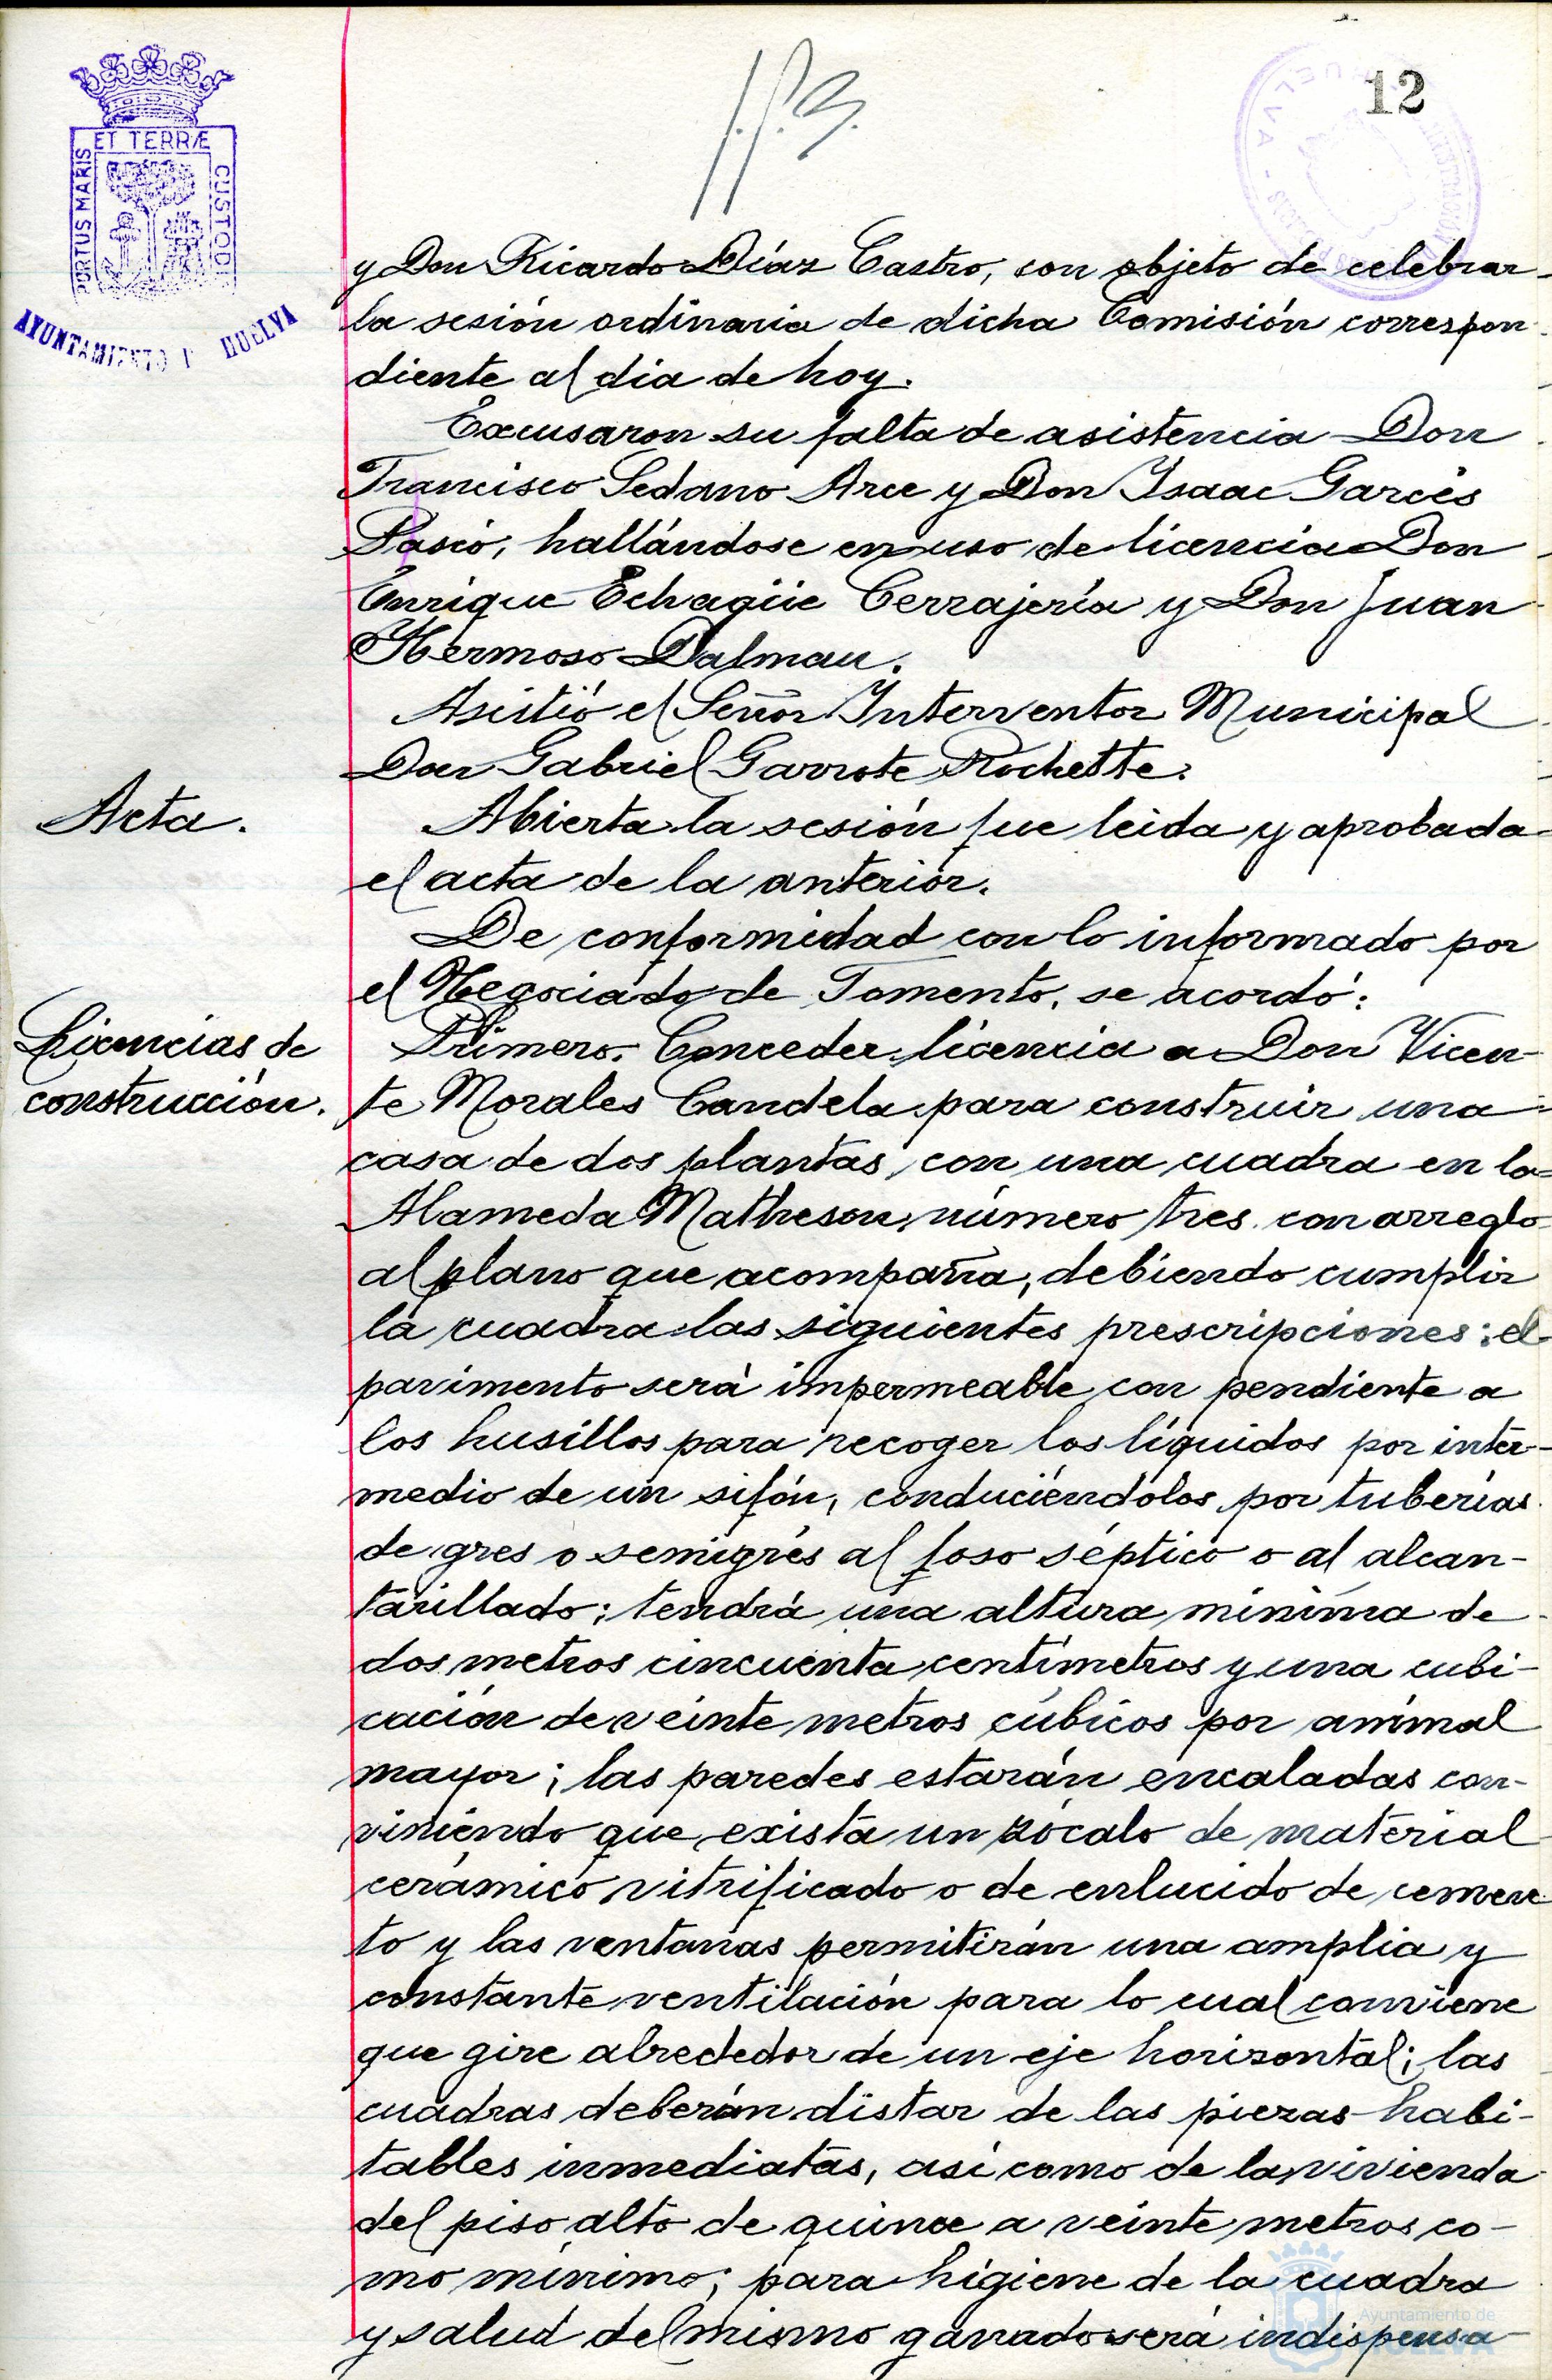 12
ET TERRÆ
PORTUS MARIS
CUSTODI
AYUNTAMIENTO D HUELVA
y Don Ricardo Díaz Castro, con objeto de celebrar
la sesión ordinaria de dicha Comisión correspon-
diente al dia de hoy.
Excusaron su falta de asistencia Don
Francisco Sedano Arce y Don Isaac Garcés
hallándose en uso de licencia Don
Enrique Echagüe Cerrajería y Don Juan
Hermoso Dalmau.
Asistió el Señor Interventor Municipal
Don Gabriel Garrote Rochette.
Acta.
Abierta la sesión fue leida y aprobada
el acta de la anterior.
De conformidad con lo informado por
el Negociado de Fomento, se acordó:
Licencias de
construcción.
Primero. Conceder licencia a Don Vicen-
te Morales Candela para construir una
casa de dos plantas, con una cuadra en la
Alameda Matheson, número tres, con arreglo
al plano que acompaña, debiendo cumplir
la cuadra las siguientes prescripciones: el
pavimento será impermeable con pendiente a
los husillos para recoger los líquidos por inter-
medio de un sifón, conduciéndolos por tuberías
de gres o semigrés al foso séptico o al alcan-
tarillado; tendrá una altura mínima de
dos metros cincuenta centímetros y una cubi-
cación de veinte metros cúbicos por animal
mayor; las paredes estarán encaladas con-
viniendo que exista un zócalo de material
cerámico vitrificado o de enlucido de cemen-
to y las ventanas permitirán una amplia y
constante ventilación para lo cual conviene
que gire alrededor de un eje horizontal; las
cuadras deberán distar de las piezas habi-
tables inmediatas, así como de la vivienda
del piso alto de quince a veinte metros co-
mo mínimo; para higiene de la cuadra
y salud del mismo ganado será indispensa-
Ayuntamiento de
HUELVA